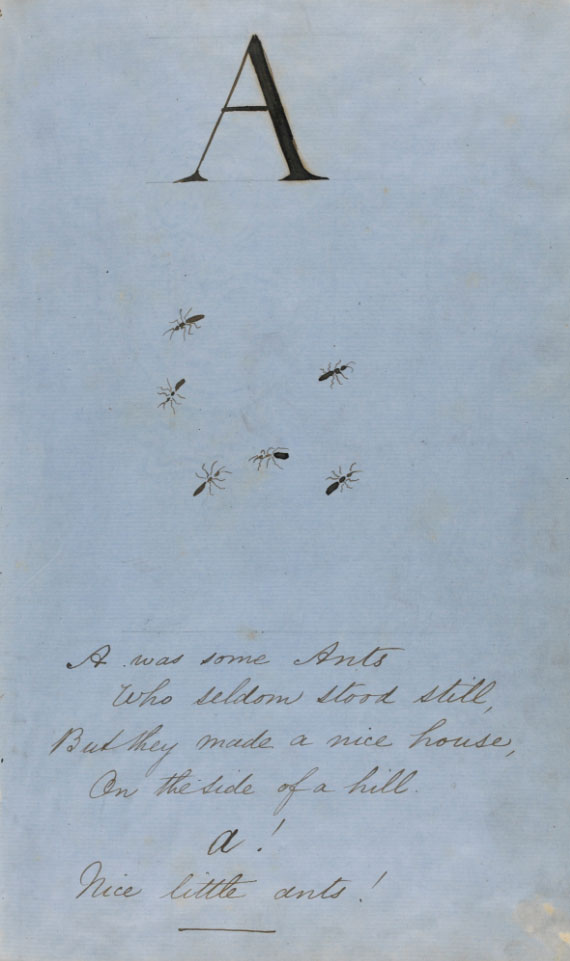 A
A was some Ants
Who seldom stood still,
But they made a nice house,
On the side of a hill.
a!
Nice little ants!